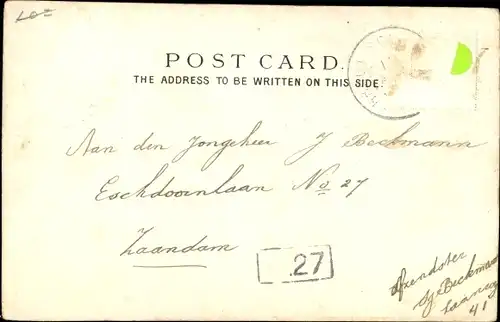 POST CARD.
THE ADDRESS TO BE WRITTEN ON THIS SIDE.
Aan den Jongeheer J Beckmann
Eschdoornlaan No 27
Zaandam
27
Afzendster
J Beckmann
41